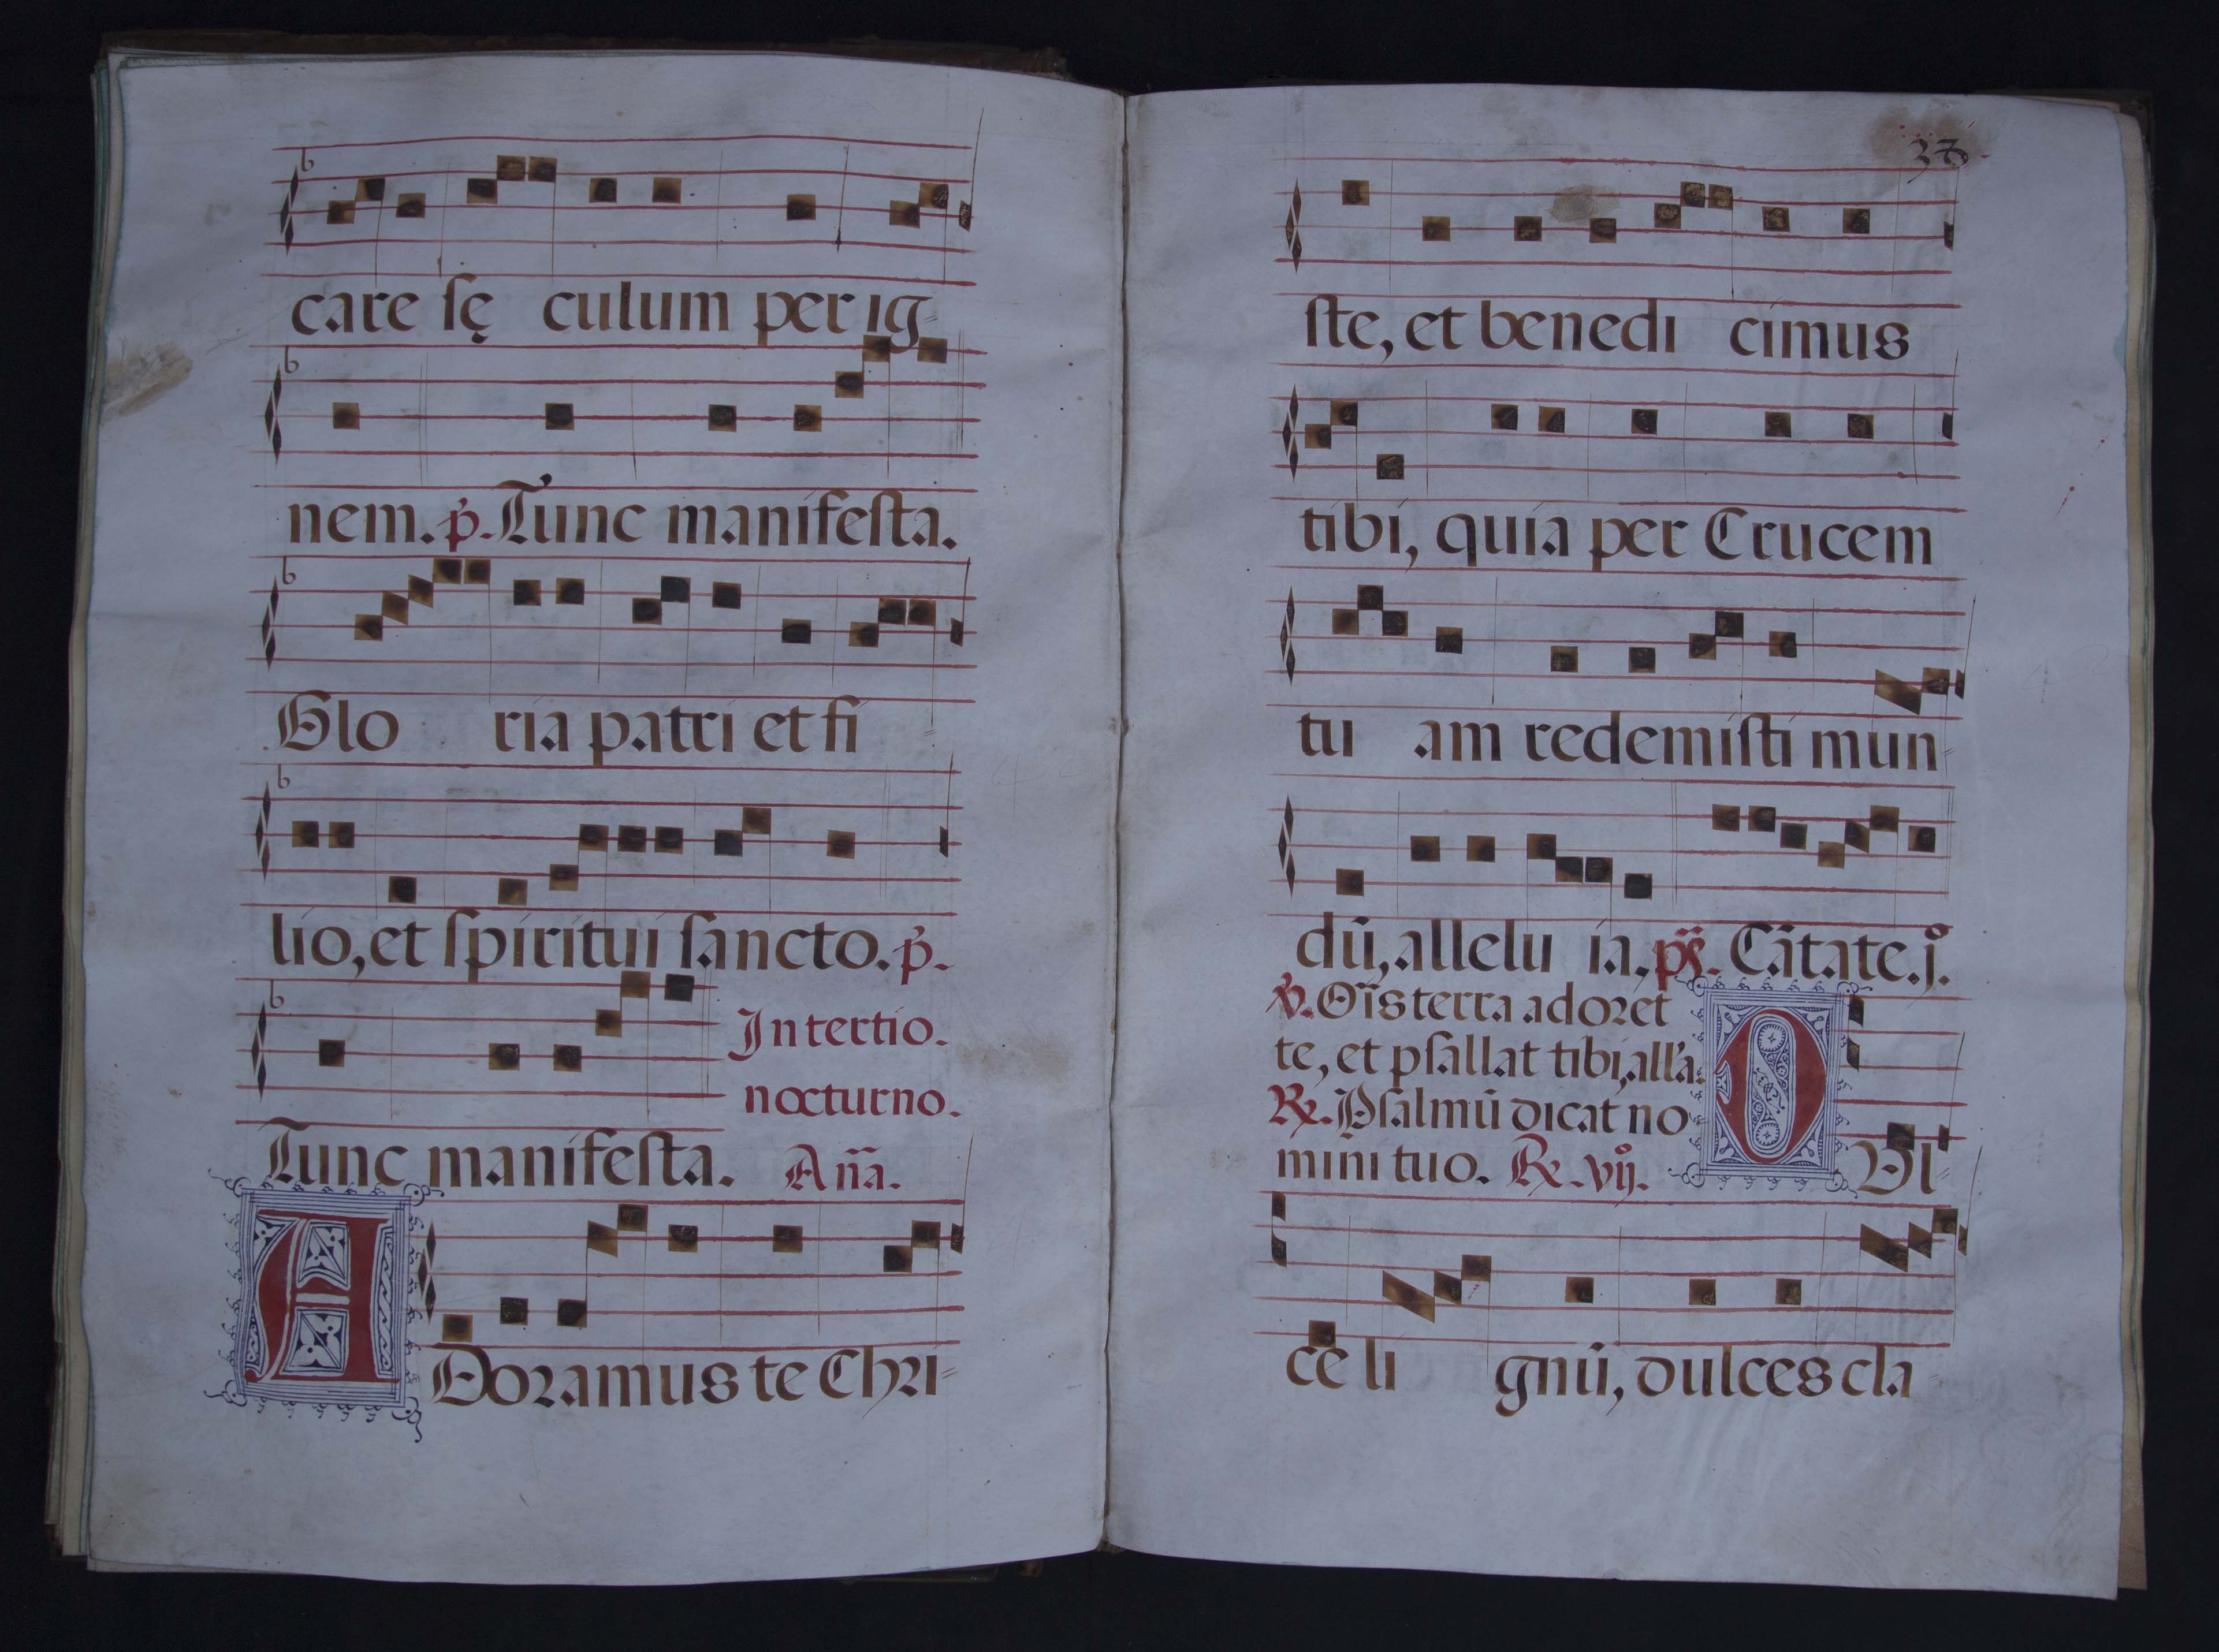 care ſę culum per ig=
nem. p̃. Tunc manifeſta.
Glo ria patri et fi=
lio, et ſpiritui ſancto. p̃.
In tertio.
nocturno.
Tunc manifeſta. Aña.
ADoramus te Chri=
37
ſte, et benedi cimus
tibi, quia per Crucem
tu am redemiſti mun=
dũ, allelu ia, ps̃. Cãtate. j°.
℣. Oĩs terra adoret
te, et pſallat tibi, all'a.
℟. Pſalmũ dicat no
mini tuo. ℟. vij°.
DVl=
cē li gnũ, dulces cla